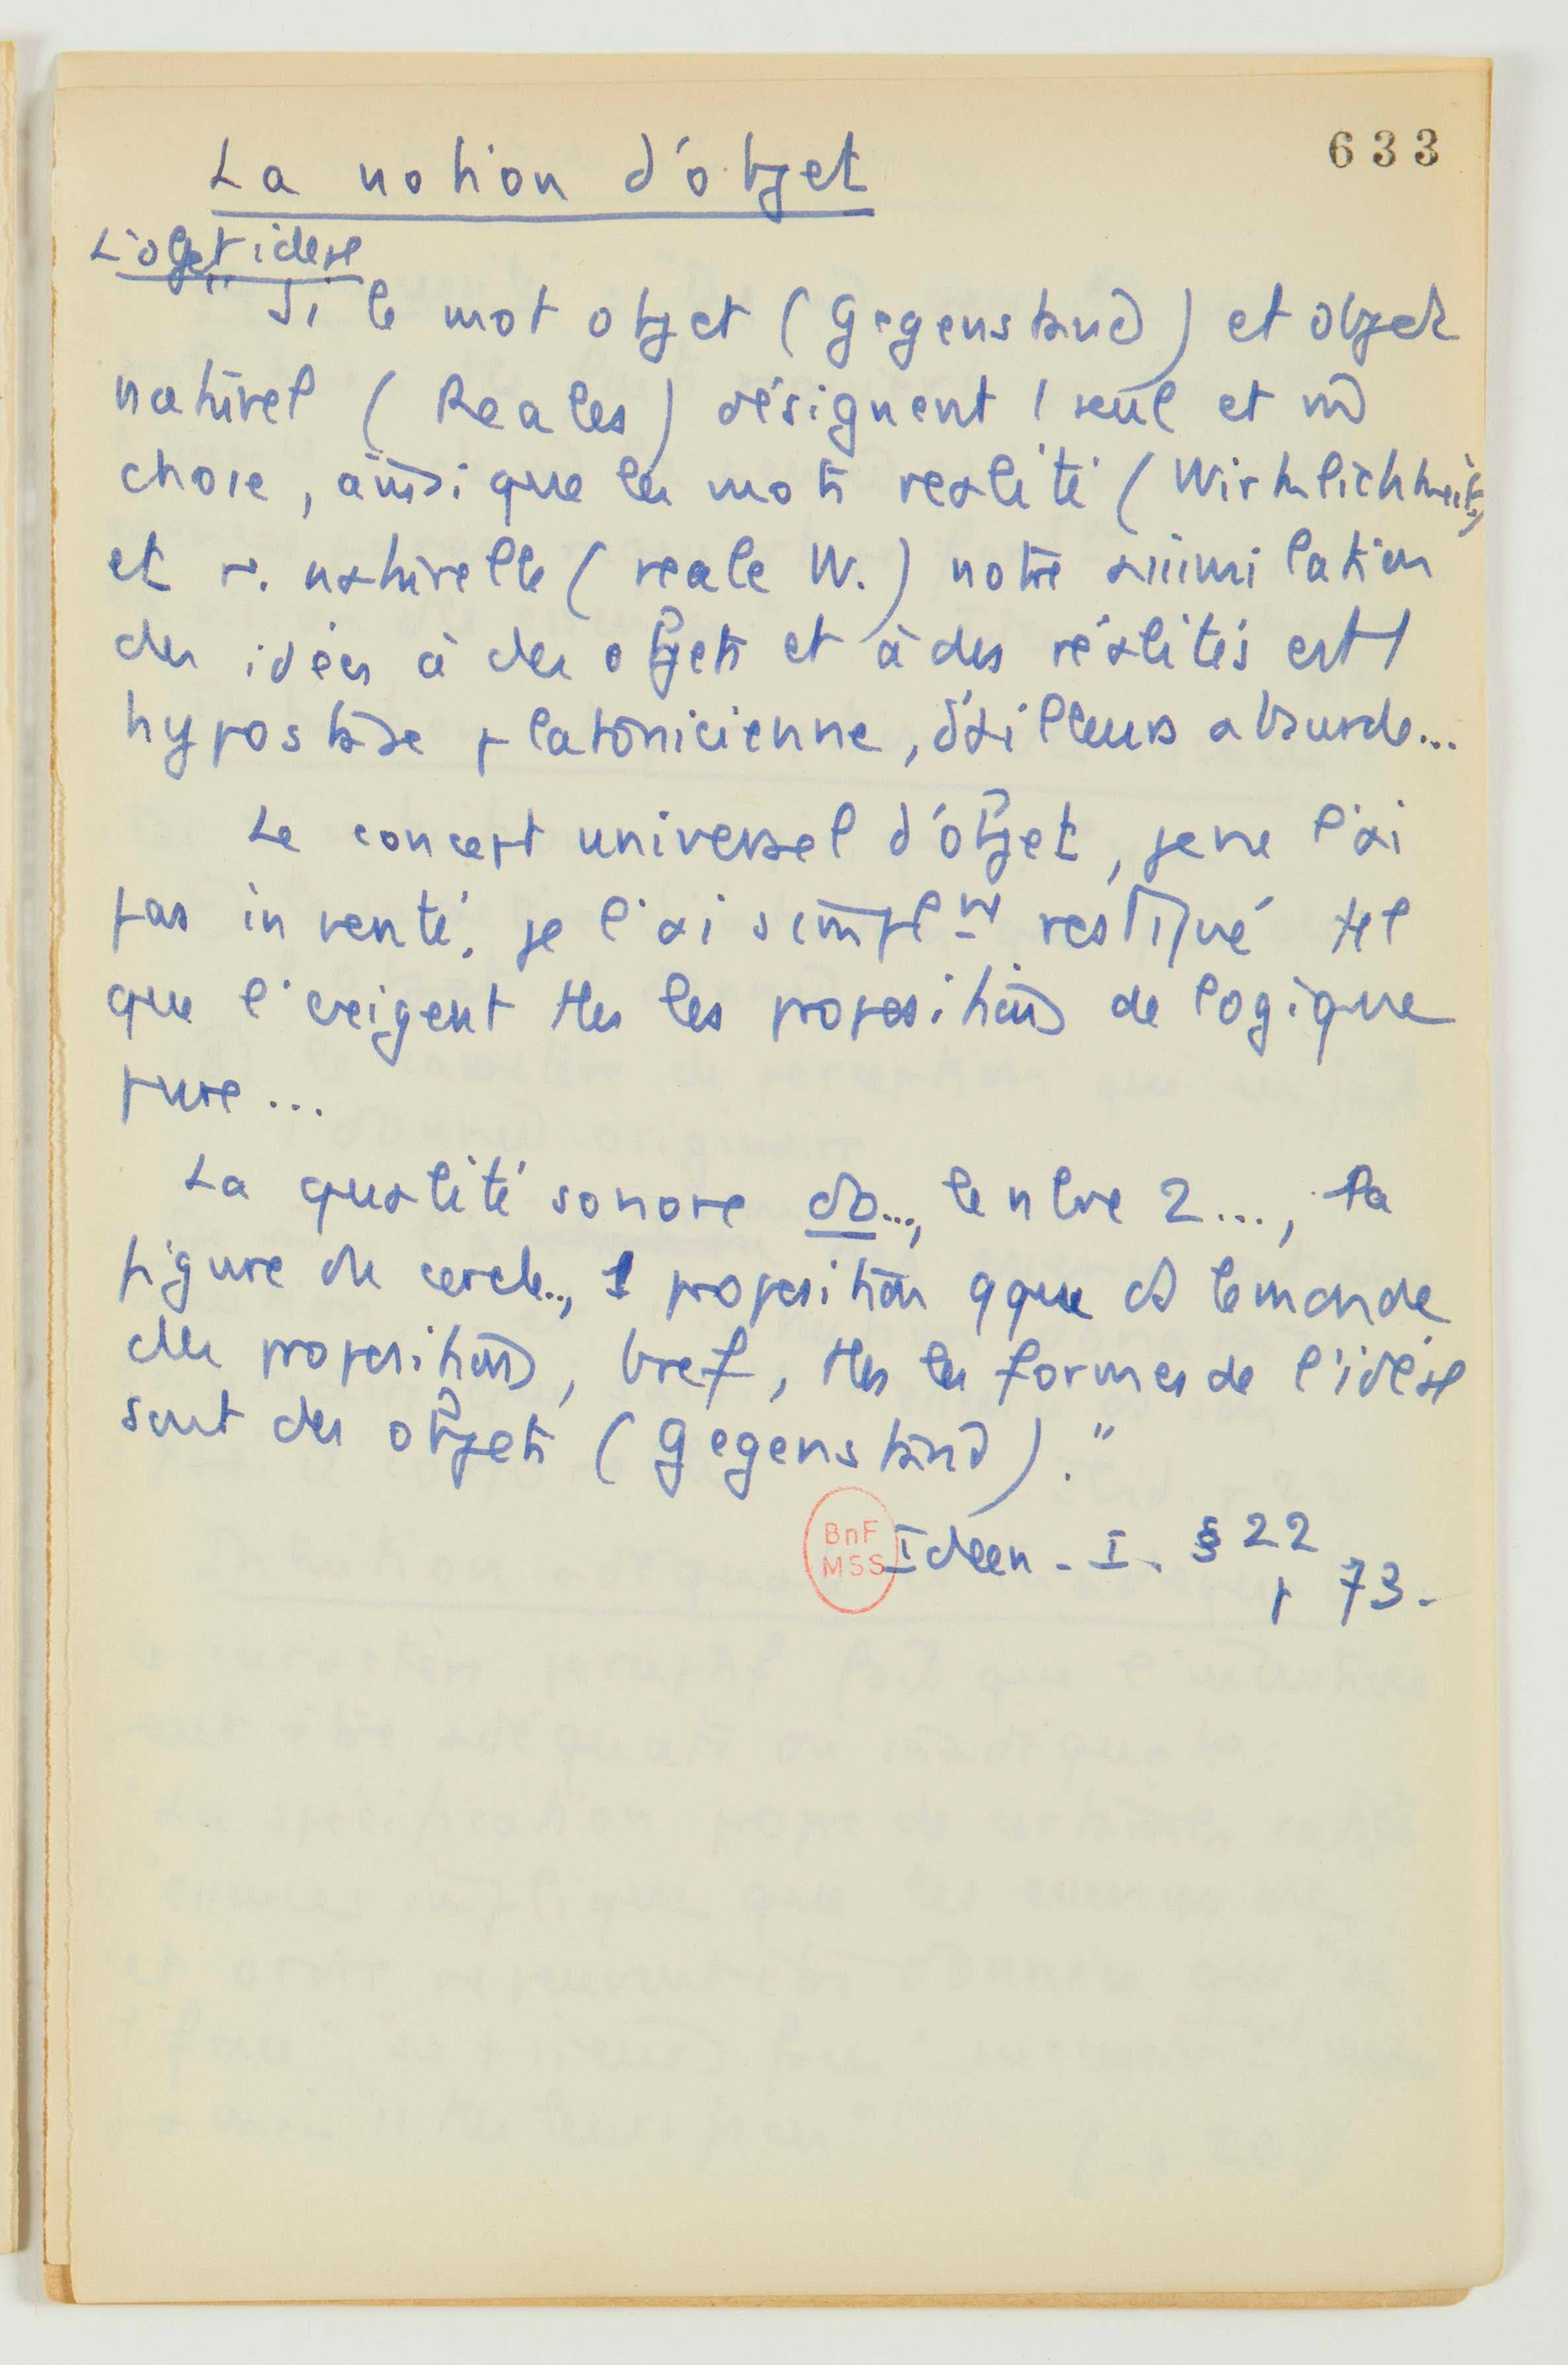 633
La notion d'objet
L'objet idéal
"Si le mot objet (Gegenstand) et objet
naturel (Reales) désignent 1 seule et m̂
chose, ainsi que les mots réalité (Wirklichkeit)
et r. naturelle (reale W.) notre assimilation
des idées à des objets et à des réalités est 1
hypostase platonicienne, d'ailleurs absurde...
Le concept universel d'objet, je ne l'ai
pas inventé, je l'ai simplᵐᵗ restitué tel
que l'exigent ttes les propositions de logique
pure...
La qualité sonore do..., le nbre 2..., la
figure du cercle.., 1 proposition qque ds le monde
des propositions, bref, ttes les formes de l'idéal
sont des objets (Gegenstand)."
BnF
MSS
Ideen - I - § 22
p 73 -